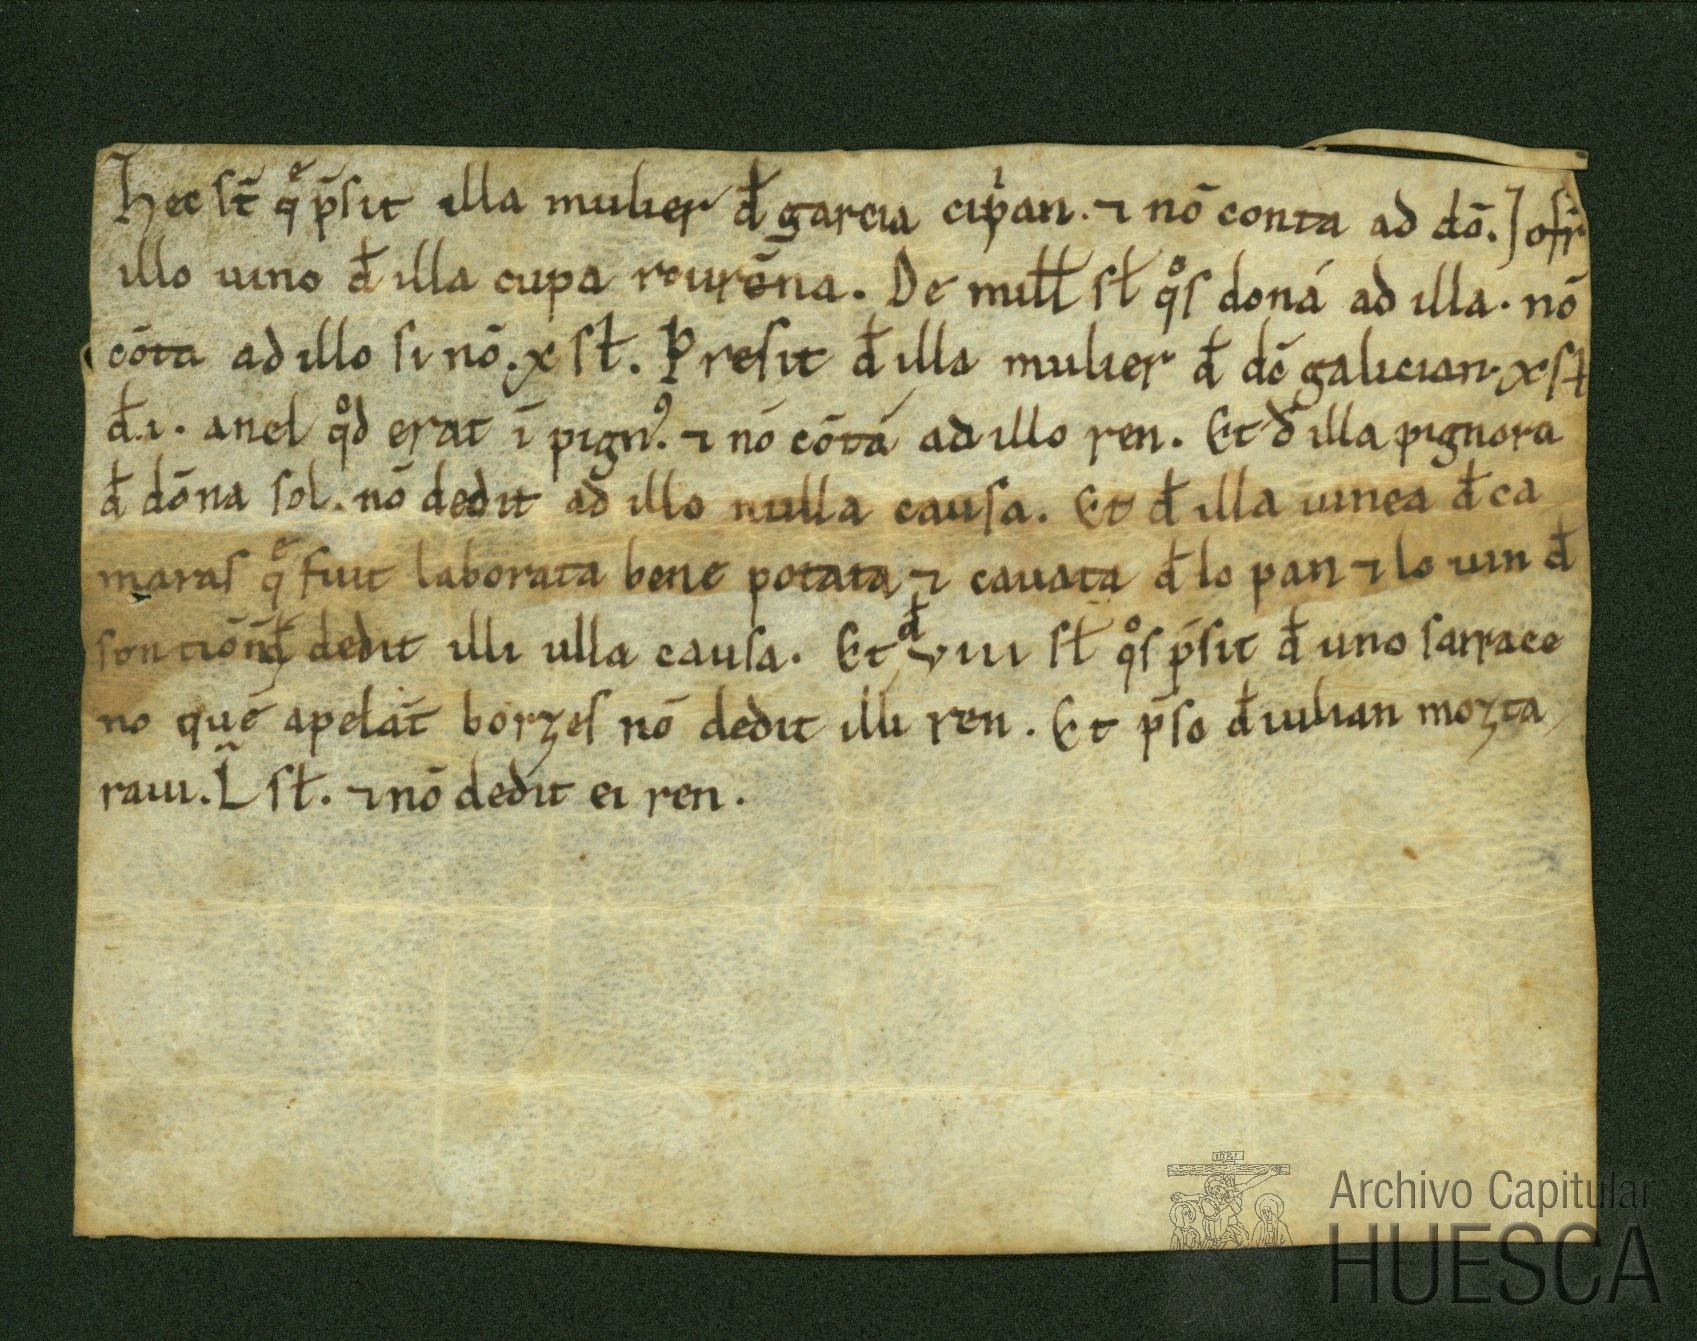 hec st̄ qͤ p̄sit illa mulier đ garcia cip̄ⁱan. ⁊ nō conta ad dō. Jofr̄
illo uino đ illa cupa rourēna. De mill̄ sł qͦs doná ad illa. nō
cōta ad illo si nō. x sł. Presit đ illa mulier đ dē galician. x sł
đ .i. anel qͦd erat ī pignꝰ. ⁊ nō cōtá ad illo ren. Et đ illa pignora
đ dōna sol. nō dedit ad illo nulla causa. Et đ illa uinea đ ca
maras qͤ fuit laborata bene potata ⁊ cauata đ lo pan ⁊ lo uin đ
dedit illi ulla causa. Et đ viii sł qͦs p̄sit đ uno sarrace
no quē apelāt borzes nō dedit illi ren. Et p̄so đ iulian mozta
raui. L sł. ⁊ nō dedit ei ren.
Archivo Capitular
HUESCA